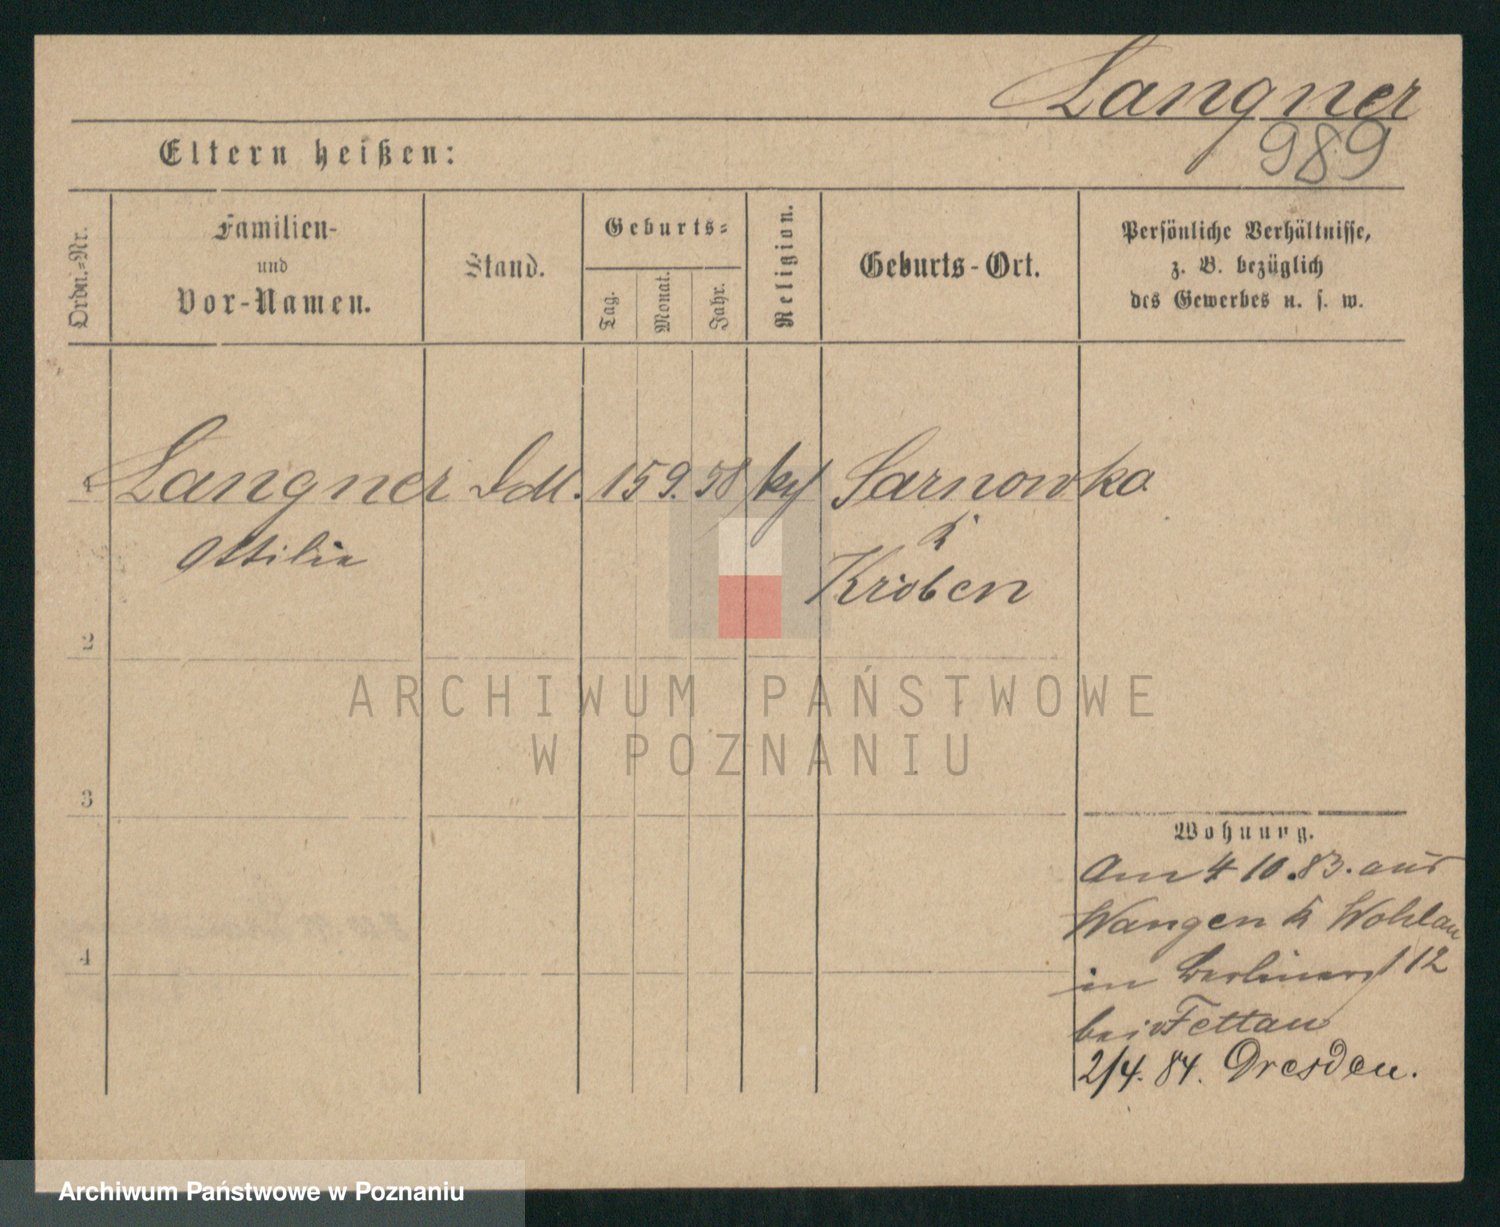 Langner
989
Eltern heißen:
Ordn.-Nr.
Familien-
und
Vor-Namen.
Stand.
Geburts-
Tag.
Monat.
Jahr.
Religion.
Geburts-Ort.
Persönliche Verhältnisse,
z. B. bezüglich
des Gewerbes u. s. w.
1 Langner 15 9. 58 Sarnowka
Ottilie
K
Kröben
2
ARCHIWUM PAŃSTWOWE
W POZNANIU
3
Wohnung.
Am 4 10. 83. aus
Wangen K Wohlau
in Berlinerst 12
bei Tettau
4
2/4. 84. Dresden.
Archiwum Państwowe w Poznaniu